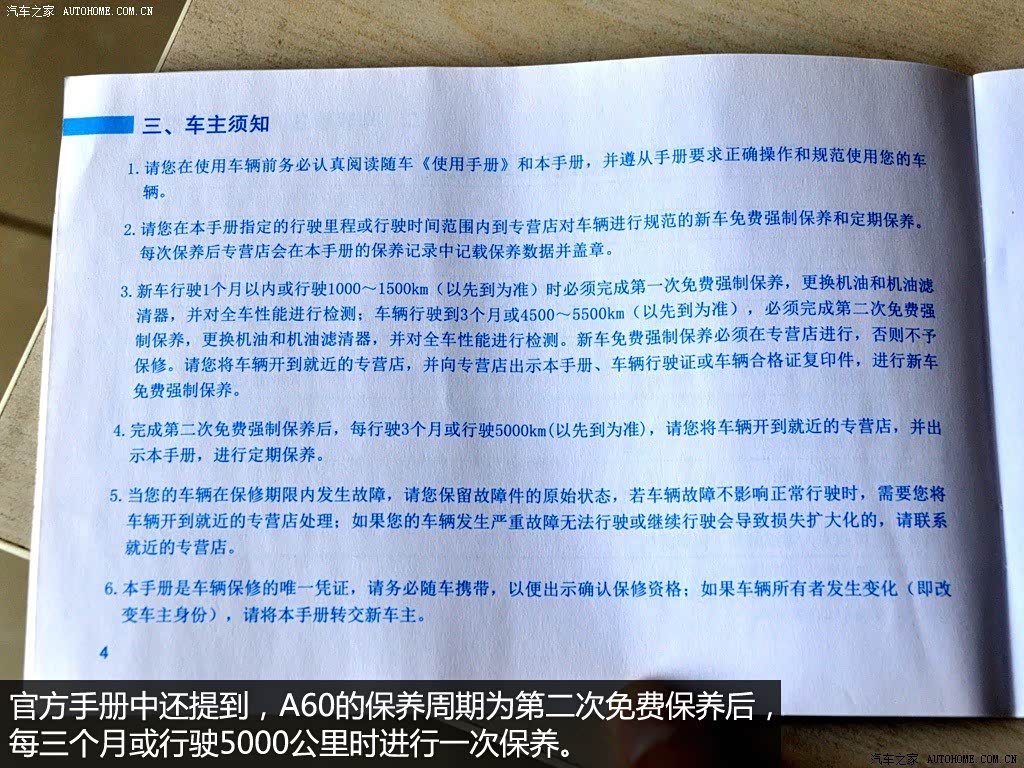 汽车之家 AUTOHOME.COM.CN
三、车主须知
1. 请您在使用车辆前务必认真阅读随车《使用手册》和本手册，并遵从手册要求正确操作和规范使用您的车
辆。
2. 请您在本手册指定的行驶里程或行驶时间范围内到专营店对车辆进行规范的新车免费强制保养和定期保养。
每次保养后专营店会在本手册的保养记录中记载保养数据并盖章。
3. 新车行驶1个月以内或行驶1000～1500km（以先到为准）时必须完成第一次免费强制保养，更换机油和机油滤
清器，并对全车性能进行检测；车辆行驶到3个月或4500～5500km（以先到为准），必须完成第二次免费强
制保养，更换机油和机油滤清器，并对全车性能进行检测。新车免费强制保养必须在专营店进行，否则不予
保修。请您将车辆开到就近的专营店，并向专营店出示本手册、车辆行驶证或车辆合格证复印件，进行新车
免费强制保养。
4. 完成第二次免费强制保养后，每行驶3个月或行驶5000km(以先到为准)，请您将车辆开到就近的专营店，并出
示本手册，进行定期保养。
5. 当您的车辆在保修期限内发生故障，请您保留故障件的原始状态，若车辆故障不影响正常行驶时，需要您将
车辆开到就近的专营店处理；如果您的车辆发生严重故障无法行驶或继续行驶会导致损失扩大化的，请联系
就近的专营店。
6. 本手册是车辆保修的唯一凭证，请务必随车携带，以便出示确认保修资格；如果车辆所有者发生变化（即改
变车主身份），请将本手册转交新车主。
4
官方手册中还提到，A60的保养周期为第二次免费保养后，
每三个月或行驶5000公里时进行一次保养。
汽车之家 AUTOHOME.COM.CN